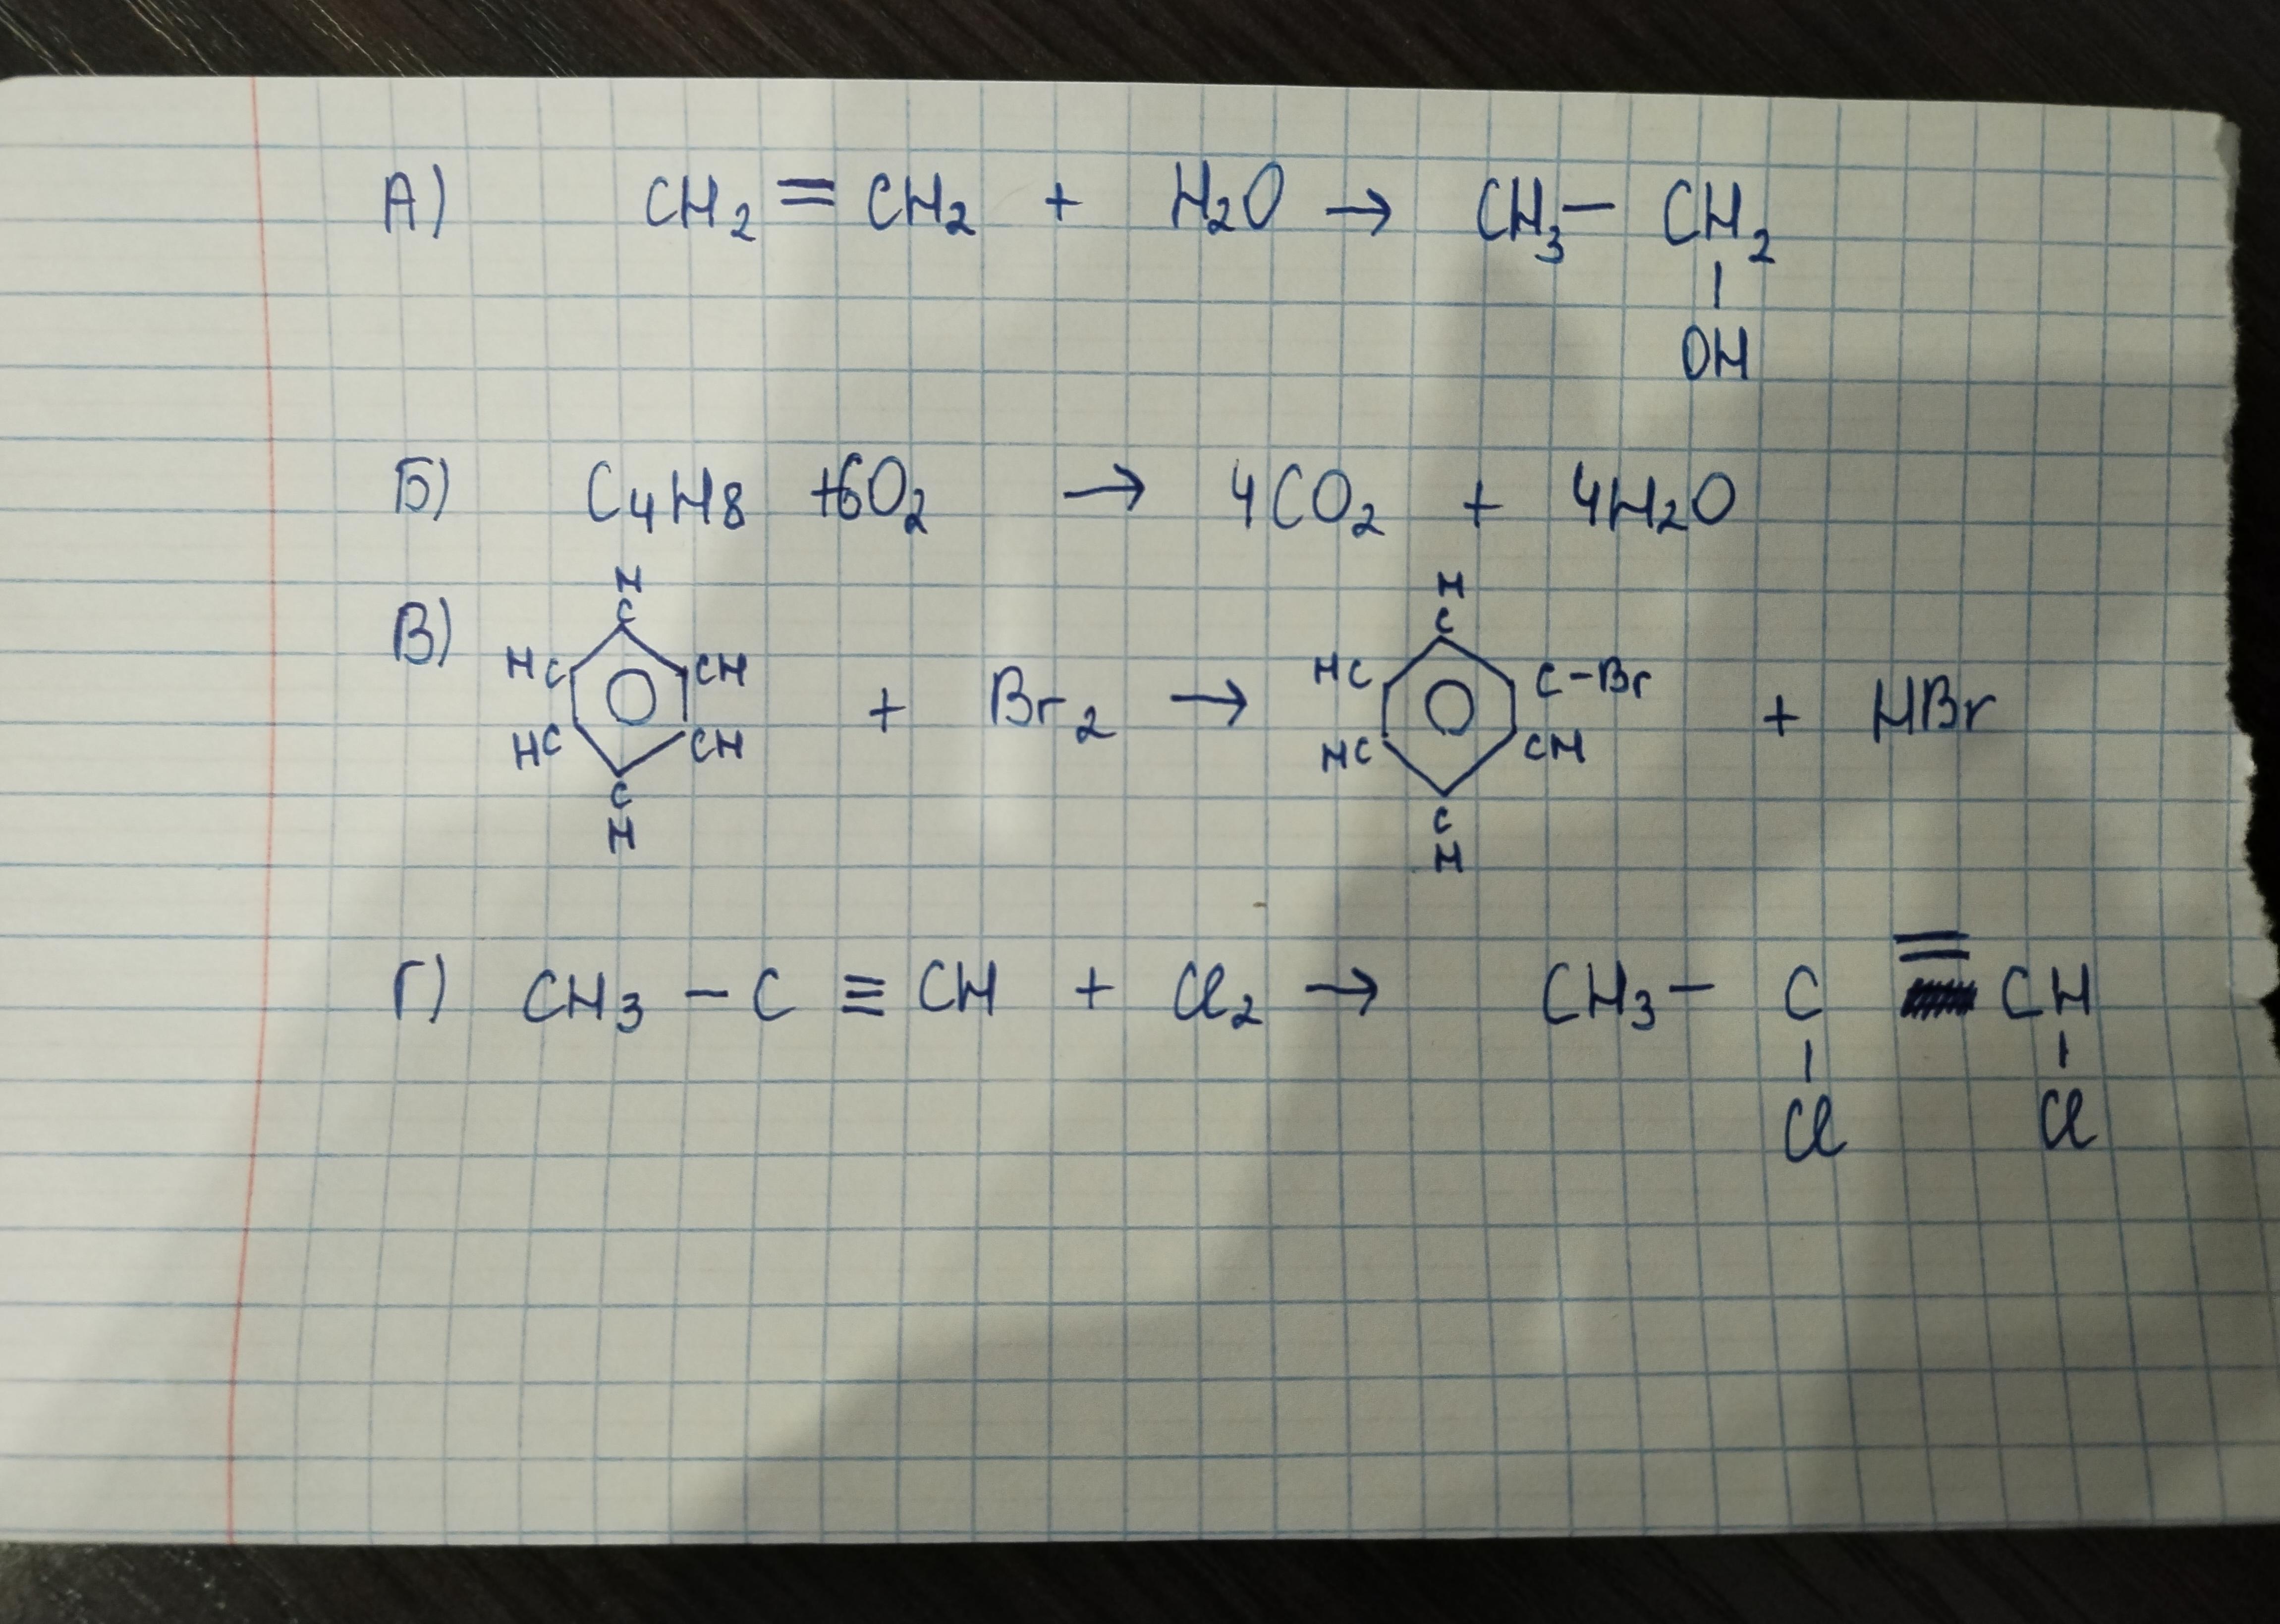 А) CH₂ = CH₂ + H₂O → CH₃ – CH₂
|
OH
Б) C₄H₈ + 6O₂ → 4CO₂ + 4H₂O
H H
В) C C
HC CH HC C–Br
+ Br₂ → + HBr
HC CH HC CH
C C
H H
Г) CH₃ – C ≡ CH + Cl₂ → CH₃ – C = CH
| |
Cl Cl